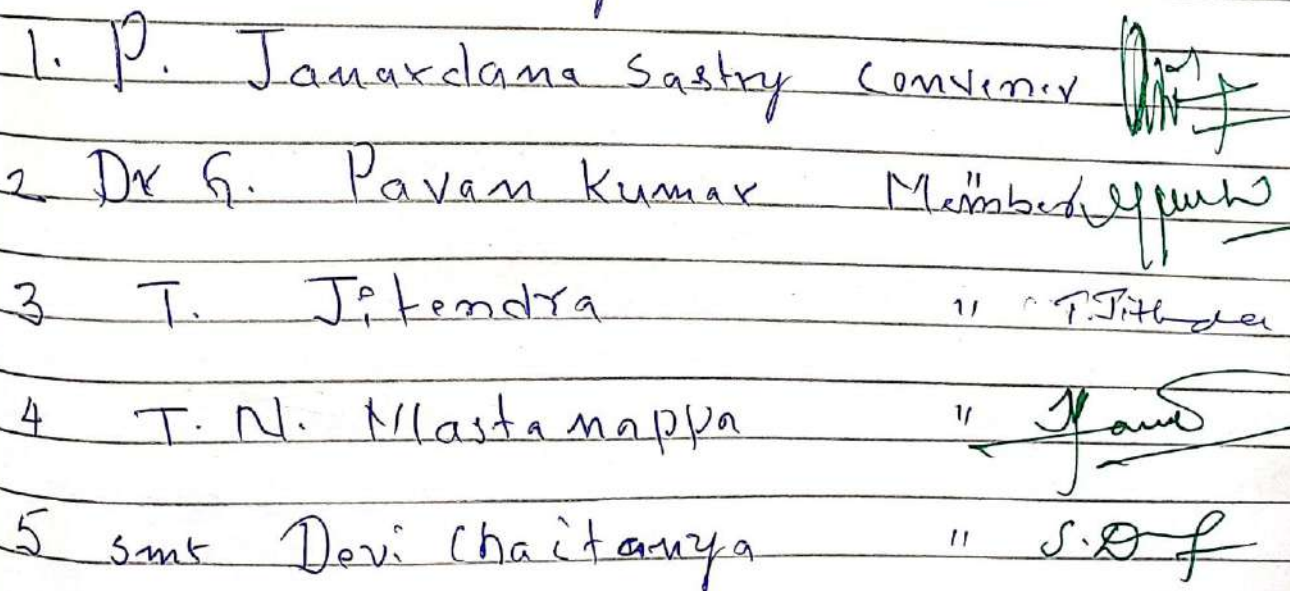 1. P. Janardana Sastry Convener
2 Dr G. Pavan Kumar Member
3 T. Jitendra " T. Jithendra
4 T. N. Mastanappa "
5 smt Devi Chaitanya " S. D